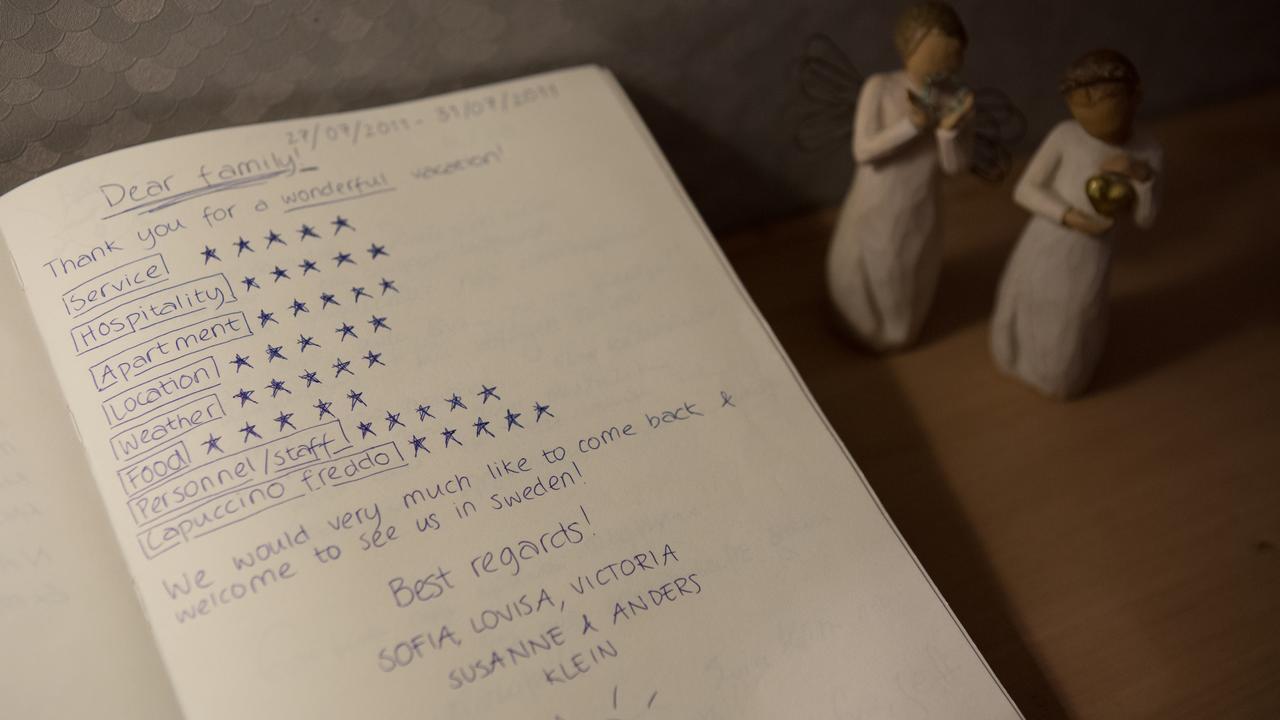 27/07/2011 - 31/07/2011
Dear family!
Thank you for a wonderful vacation!
Service ★ ★ ★ ★ ★
Hospitality ★ ★ ★ ★ ★
Apartment ★ ★ ★ ★ ★
Location ★ ★ ★ ★ ★
Weather ★ ★ ★ ★ ★
Food ★ ★ ★ ★ ★
Personnel/staff ★ ★ ★ ★ ★
Capuccino freddo ★ ★ ★ ★ ★
We would very much like to come back &
welcome to see us in Sweden!
Best regards!
SOFIA, LOVISA, VICTORIA
SUSANNE & ANDERS
KLEIN